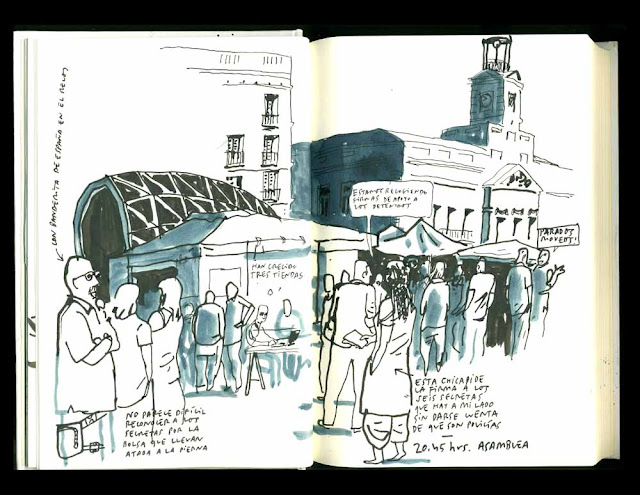 CON BANDERITA DE ESPAÑA EN EL RELOJ
ESTAMOS RECOGIENDO
FIRMAS DE APOYO A
LOS DETENIDOS
PARADOS
MOVEOS!
HAN CRECIDO
TRES TIENDAS
NO PARECE DIFÍCIL
RECONOCER A LOS
SECRETAS POR LA
BOLSA QUE LLEVAN
ATADA A LA PIERNA
ESTA CHICA PIDE
LA FIRMA A LOS
SEIS SECRETAS
QUE HAY A MI LADO
SIN DARSE CUENTA
DE QUE SON POLICÍAS
20.45 hrs. ASAMBLEA